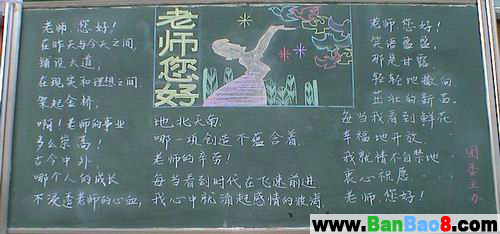 老师您好
老师,您好!
在昨天与今天之间,
铺设大道;
在现实和理想之间,
架起金桥;
啊!老师的事业
多么崇高!
古今中外,
哪个人的成长
不浸透老师的心血,
地北天南,
哪一项创造不蕴含着
老师的辛劳!
每当看到时代在飞速前进,
我心中就涌起感情的波涛,
老师,您好!
笑语盈盈,
那是甘露
轻轻地撒向
茁壮的新苗,
每当我看到鲜花
幸福地开放,
我就情不自禁地
衷心祝愿:
老师,您好!
团委主办
半包吧
www.BanBao8.com